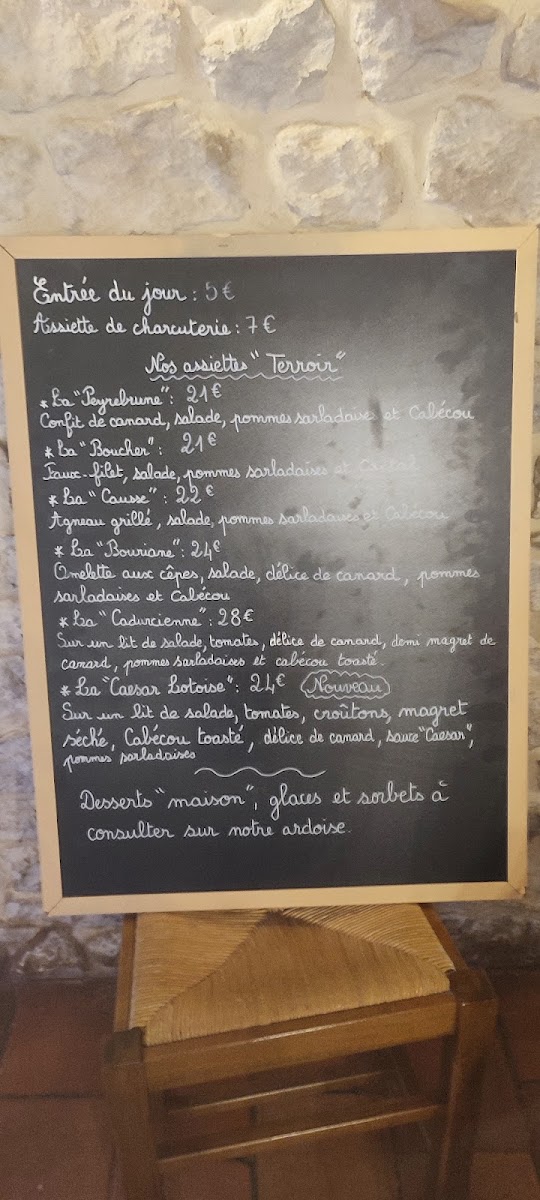 Entrée du jour : 5€
Assiette de charcuterie : 7€
Nos assiettes "Terroir"
* La "Peyrebrune" : 21€
Confit de canard, salade, pommes sarladaises et Cabécou
* La "Boucher" : 21€
Faux-filet, salade, pommes sarladaises et
* La "Causse" : 22€
Agneau grillé, salade, pommes sarladaises et Cabécou
* La "Bouriane" : 24€
Omelette aux cêpes, salade, délice de canard, pommes
sarladaises et Cabécou
* La "Cadurcienne" : 28€
Sur un lit de salade, tomates, délice de canard, demi magret de
canard, pommes sarladaises et cabécou toasté.
* La "Caesar Lotoise" : 24€ Nouveau
Sur un lit de salade, tomates, croûtons, magret
séché, Cabécou toasté, délice de canard, sauce "Caesar",
pommes sarladaises
Desserts "maison", glaces et sorbets à
consulter sur notre ardoise.